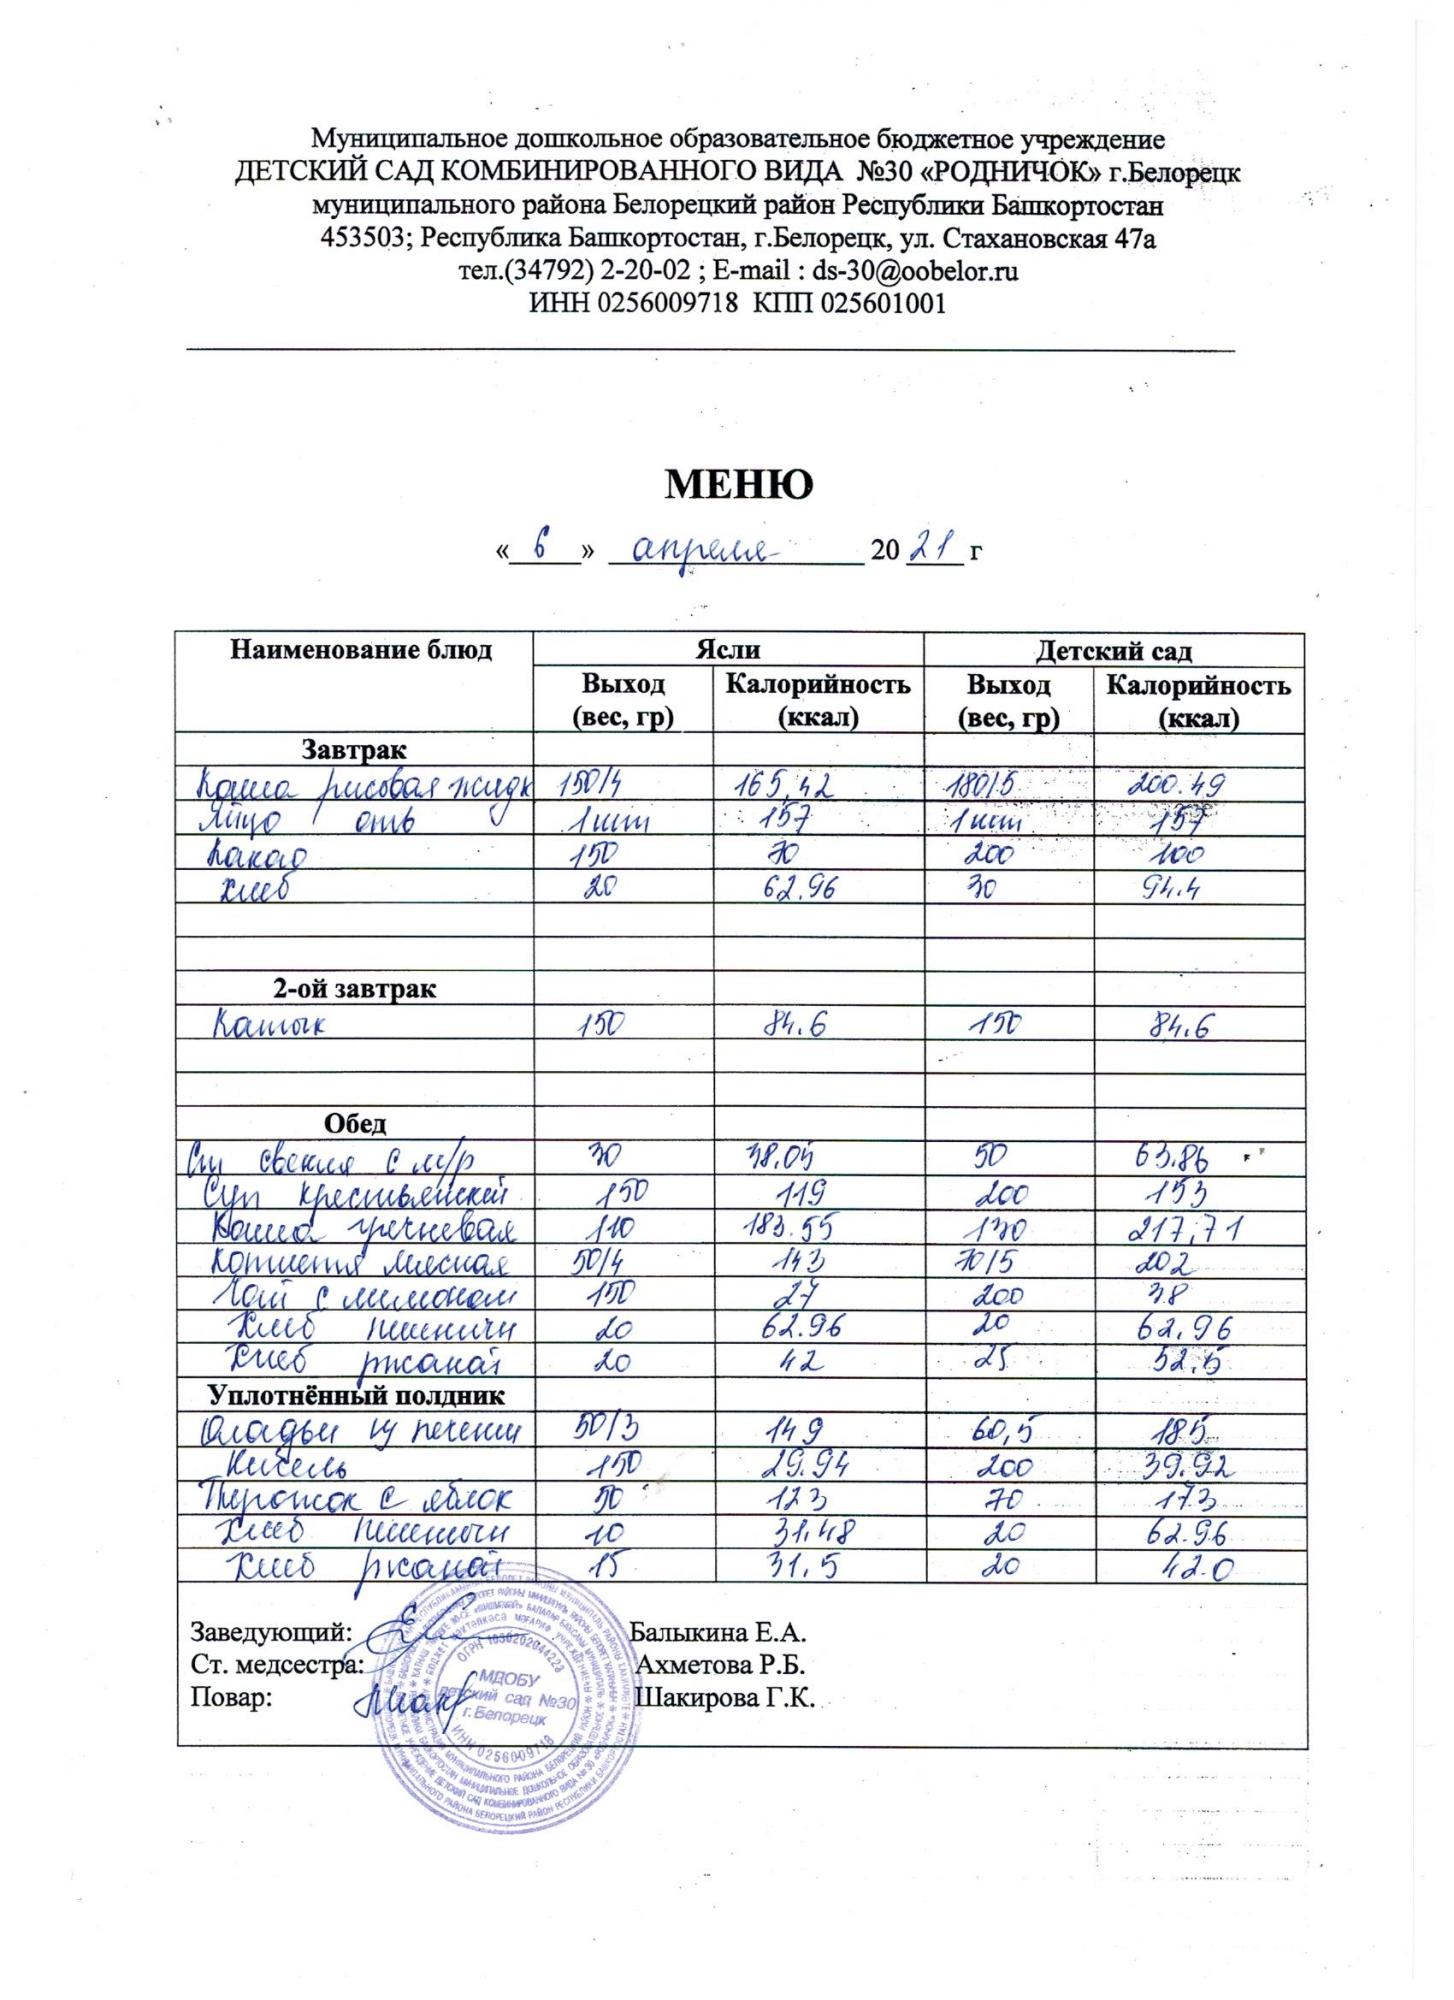 Муниципальное дошкольное образовательное бюджетное учреждение
ДЕТСКИЙ САД КОМБИНИРОВАННОГО ВИДА №30 «РОДНИЧОК» г.Белорецк
муниципального района Белорецкий район Республики Башкортостан
453503; Республика Башкортостан, г.Белорецк, ул. Стахановская 47а
тел.(34792) 2-20-02 ; E-mail : ds-30@oobelor.ru
ИНН 0256009718 КПП 025601001
МЕНЮ
« 6 » апреля 20 21 г
Наименование блюд Ясли Детский сад
Выход (вес, гр) Калорийность (ккал) Выход (вес, гр) Калорийность (ккал)
Завтрак
Каша рисовая жидк 150/4 165,42 180/5 200.49
Яйцо отв 1шт 157 1шт 157
Какао 150 70 200 100
хлеб 20 62.96 30 94.4
2-ой завтрак
Катык 150 84.6 150 84.6
Обед
свекла с м/р 30 38.05 50 63.86
Суп крестьянской 150 119 200 153
Каша гречневая 110 183.55 130 217,71
Котлета мясная 50/4 143 70/5 202
Чай с лимоном 150 27 200 38
Хлеб пшеничн 20 62.96 20 62,96
Хлеб ржаной 20 42 25 52,5
Уплотнённый полдник
Оладьи из печени 50/3 149 60,5 185
Кисель 150 29.94 200 39.92
Пирожок с яблок 50 123 70 173
Хлеб пшеничн 10 31,48 20 62.96
Хлеб ржаной 15 31,5 20 42.0
Заведующий: Балыкина Е.А.
Ст. медсестра: Ахметова Р.Б.
Повар: Шакирова Г.К.
МДОБУ
детский сад №30
г.Белорецк
ИНН 0256009718